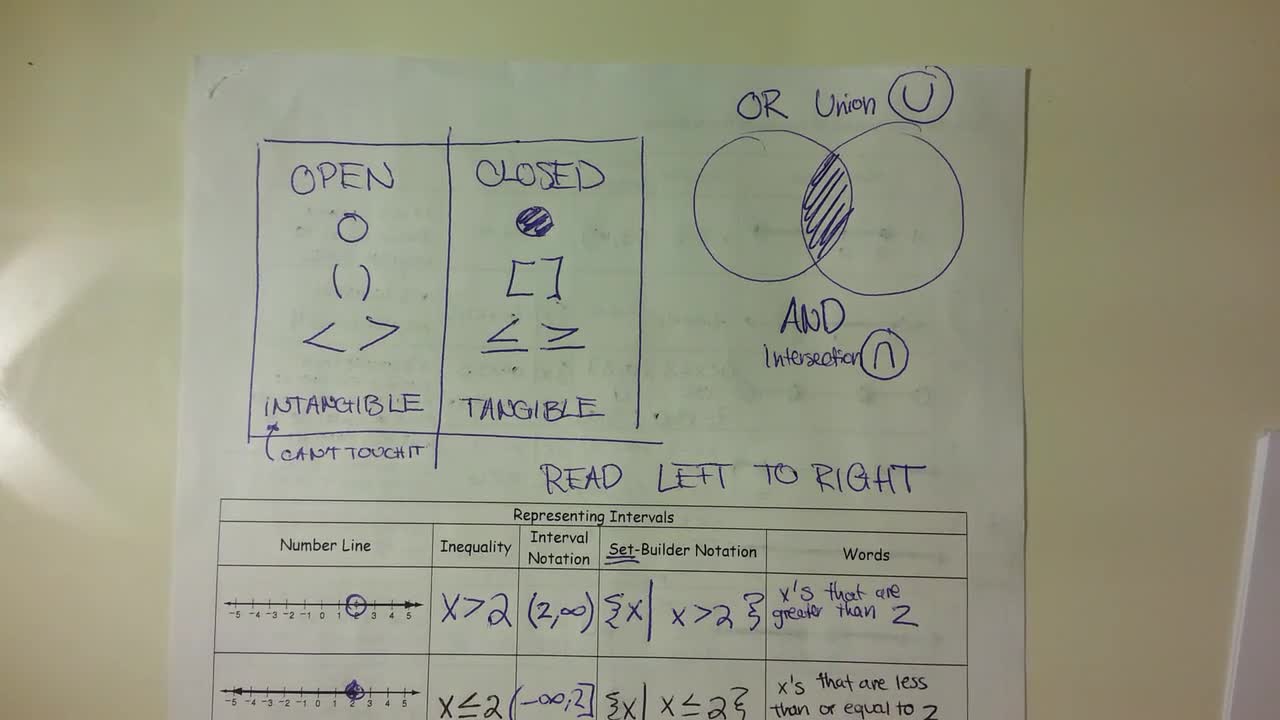 OR Union U
OPEN CLOSED
( ) [ ]
< > ≤ ≥
INTANGIBLE TANGIBLE
CAN'T TOUCH IT
AND
Intersection ∩
READ LEFT TO RIGHT
Representing Intervals
Number Line Inequality Interval Notation Set-Builder Notation Words
-5 -4 -3 -2 -1 0 1 2 3 4 5 x>2 (2,∞) {x| x>2} x's that are greater than 2
-5 -4 -3 -2 -1 0 1 2 3 4 5 x≤2 (-∞,2] {x| x≤2} x's that are less than or equal to 2